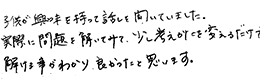 子供が興味を持って話しを聞いていました。
実際に問題を解いてみて、少し考えかたを変えるだけで
解ける事がわかり良かったと思います。